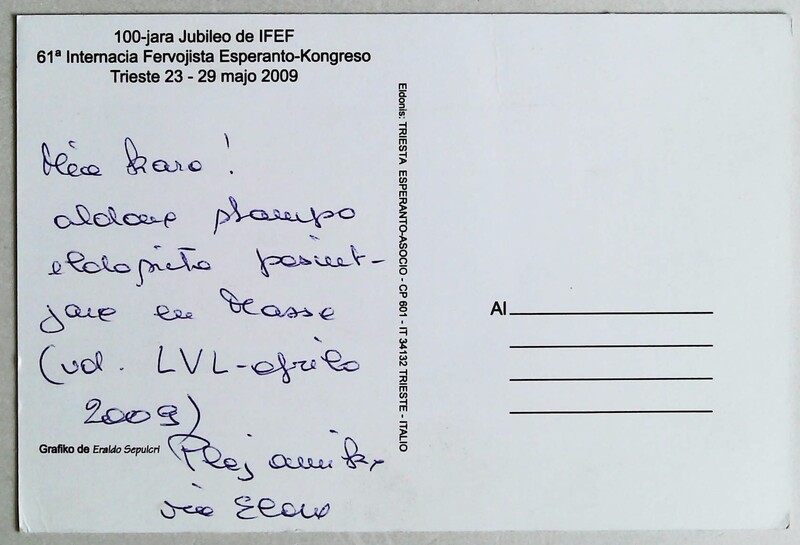 100-jara Jubileo de IFEF
61ª Internacia Fervojista Esperanto-Kongreso
Trieste 23 - 29 majo 2009
Mia kara!
aldone stampo
eldonita pasint-
jare en Masse
(vd. LVL-aprilo
2009)
Plej amike
via
Grafiko de Eraldo Sepulcri
Eldonis: TRIESTA ESPERANTO-ASOCIO - CP 601 - IT 34132 TRIESTE - ITALIO
Al